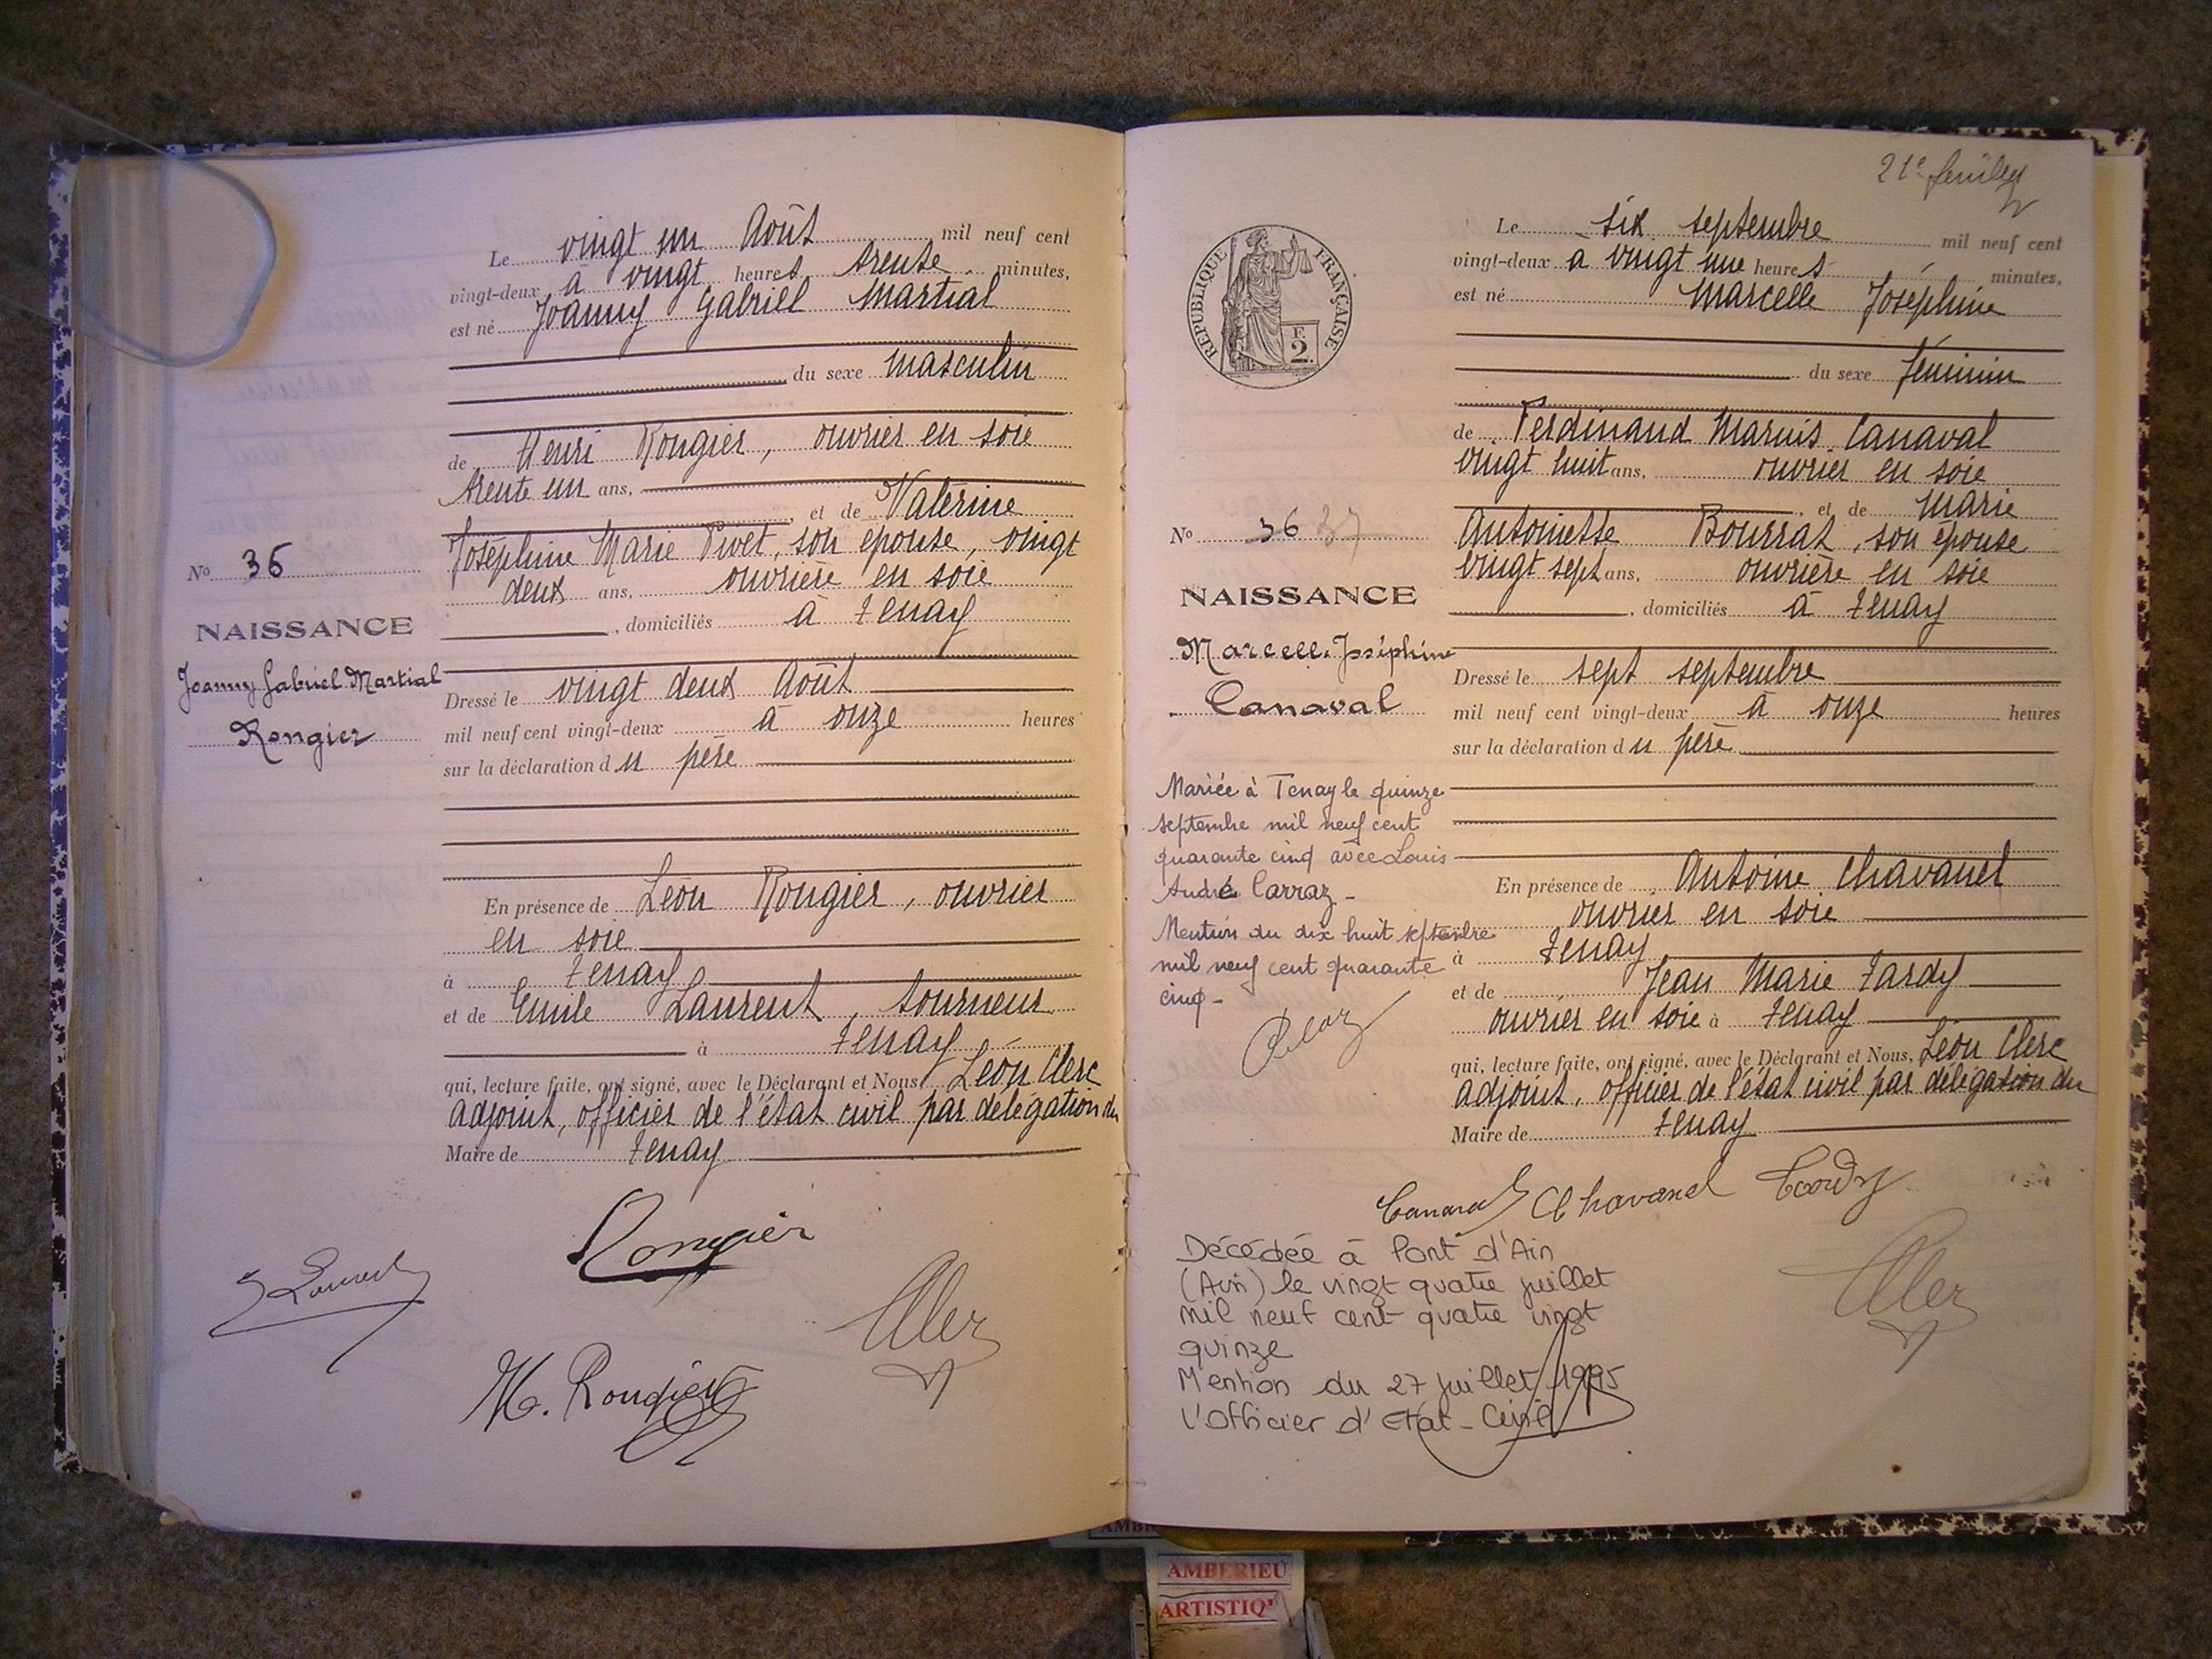 Le vingt un Août mil neuf cent
vingt-deux à vingt heures trente minutes,
est né Joanny Gabriel Martial
du sexe masculin
de Henri Rougier, ouvrier en soie
trente un ans,
et de Valérine
Joséphine Marie Pivet, son épouse, vingt
deux ans, ouvrière en soie
domiciliés à Tenay
No 36
NAISSANCE
Joanny Gabriel Martial
Rougier
Dressé le vingt deux Août
mil neuf cent vingt-deux à onze heures
sur la déclaration du père
En présence de Léon Rougier, ouvrier
en soie
à Tenay
et de Emile Laurent, tourneur
à Tenay
qui, lecture faite, ont signé, avec le Déclarant et Nous, Léon Clerc
adjoint, officier de l'état civil par délégation du
Maire de Tenay
Rougier
Laurent
H. Rougier
21e feuillet
RÉPUBLIQUE FRANÇAISE
F.
2.
Le six septembre mil neuf cent
vingt-deux à vingt une heures minutes,
est né Marcelle Joséphine
du sexe féminin
de Ferdinand Marius Canaval
vingt huit ans, ouvrier en soie
et de Marie
Antoinette Bourrat, son épouse
vingt sept ans, ouvrière en soie
domiciliés à Tenay
No 36 37
NAISSANCE
Marcelle Joséphine
Canaval
Dressé le sept septembre
mil neuf cent vingt-deux à onze heures
sur la déclaration du père
Mariée à Tenay le quinze
septembre mil neuf cent
quarante cinq avec Louis
André Carraz -
Mention du dix huit septembre
mil neuf cent quarante
cinq -
En présence de Antoine Chavanel
ouvrier en soie
à Tenay
et de Jean Marie Tardy
ouvrier en soie à Tenay
qui, lecture faite, ont signé, avec le Déclarant et Nous, Léon Clerc
adjoint, officier de l'état civil par délégation du
Maire de Tenay
Canaval Chavanel Tardy
Décédée à Pont d'Ain
(Ain) le vingt quatre juillet
mil neuf cent quatre vingt
quinze
Mention du 27 juillet 1995
L'Officier d'Etat-Civil
AMBERIEU
ARTISTIQ